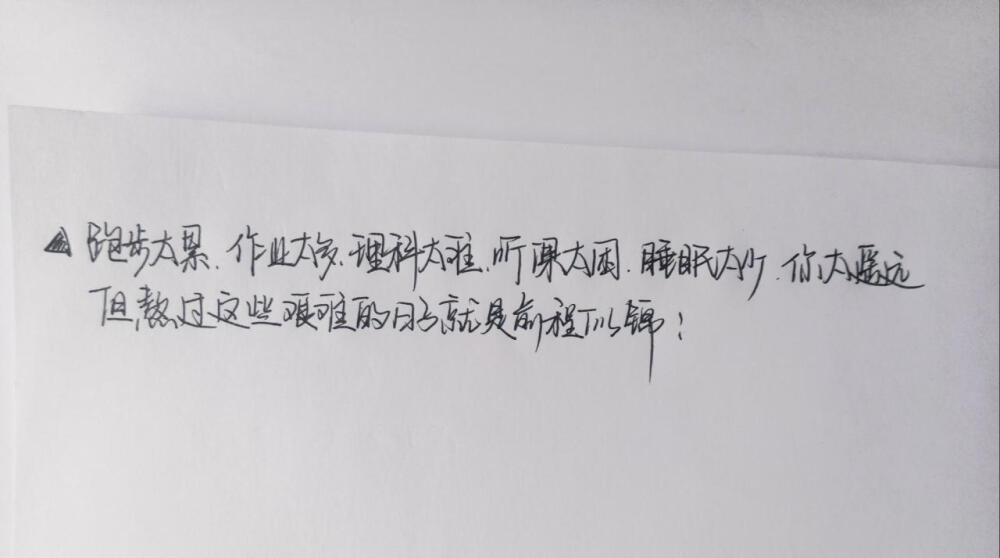 ▲跑步太累、作业太多、理科太难、听课太困、睡眠太少、你太遥远
但熬过这些艰难的日子就是前程似锦!